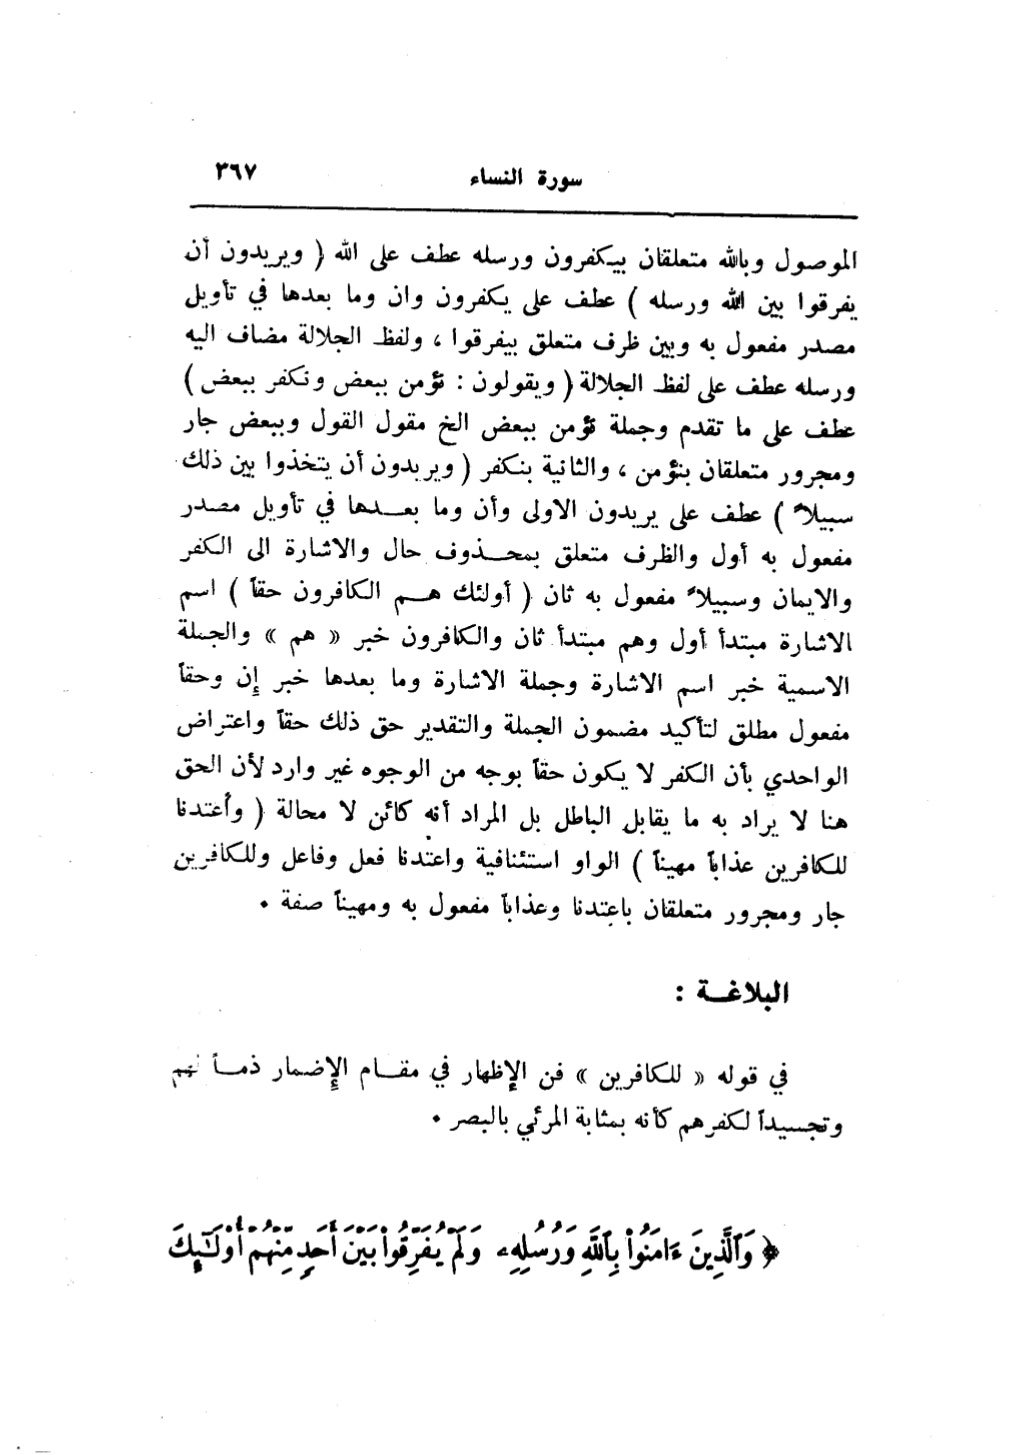 سورة النساء ٣٦٧
الموصول وبالله متعلقان بيكفرون ورسله عطف على الله ( ويريدون أن
يفرقوا بين الله ورسله ) عطف على يكفرون وان وما بعدها في تأويل
مصدر مفعول به وبين ظرف متعلق بيفرقوا ، ولفظ الجلالة مضاف اليه
ورسله عطف على لفظ الجلالة ( ويقولون : نؤمن ببعض ونكفر ببعض )
عطف على ما تقدم وجملة نؤمن ببعض الخ مقول القول وببعض جار
ومجرور متعلقان بنؤمن ، والثانية بنكفر ( ويريدون أن يتخذوا بين ذلك
سبيلاً ) عطف على يريدون الاولى وأن وما بعدها في تأويل مصدر
مفعول به أول والظرف متعلق بمحذوف حال والاشارة الى الكفر
والايمان وسبيلاً مفعول به ثان ( أولئك هم الكافرون حقاً ) اسم
الاشارة مبتدأ أول وهم مبتدأ ثان والكافرون خبر « هم » والجملة
الاسمية خبر اسم الاشارة وجملة الاشارة وما بعدها خبر إن وحقاً
مفعول مطلق لتأكيد مضمون الجملة والتقدير حق ذلك حقاً واعتراض
الواحدي بأن الكفر لا يكون حقاً بوجه من الوجوه غير وارد لأن الحق
هنا لا يراد به ما يقابل الباطل بل المراد أنه كائن لا محالة ( وأعتدنا
للكافرين عذاباً مهيناً ) الواو استئنافية واعتدنا فعل وفاعل وللكافرين
جار ومجرور متعلقان باعتدنا وعذاباً مفعول به ومهيناً صفة .
البلاغة :
في قوله « للكافرين » فن الإظهار في مقام الإضمار ذماً لهم
وتجسيداً لكفرهم كأنه بمثابة المرئي بالبصر .
﴿ وَٱلَّذِينَ ءَامَنُوا۟ بِٱللَّهِ وَرُسُلِهِۦ وَلَمْ يُفَرِّقُوا۟ بَيْنَ أَحَدٍ مِّنْهُمْ أُو۟لَـٰٓئِكَ